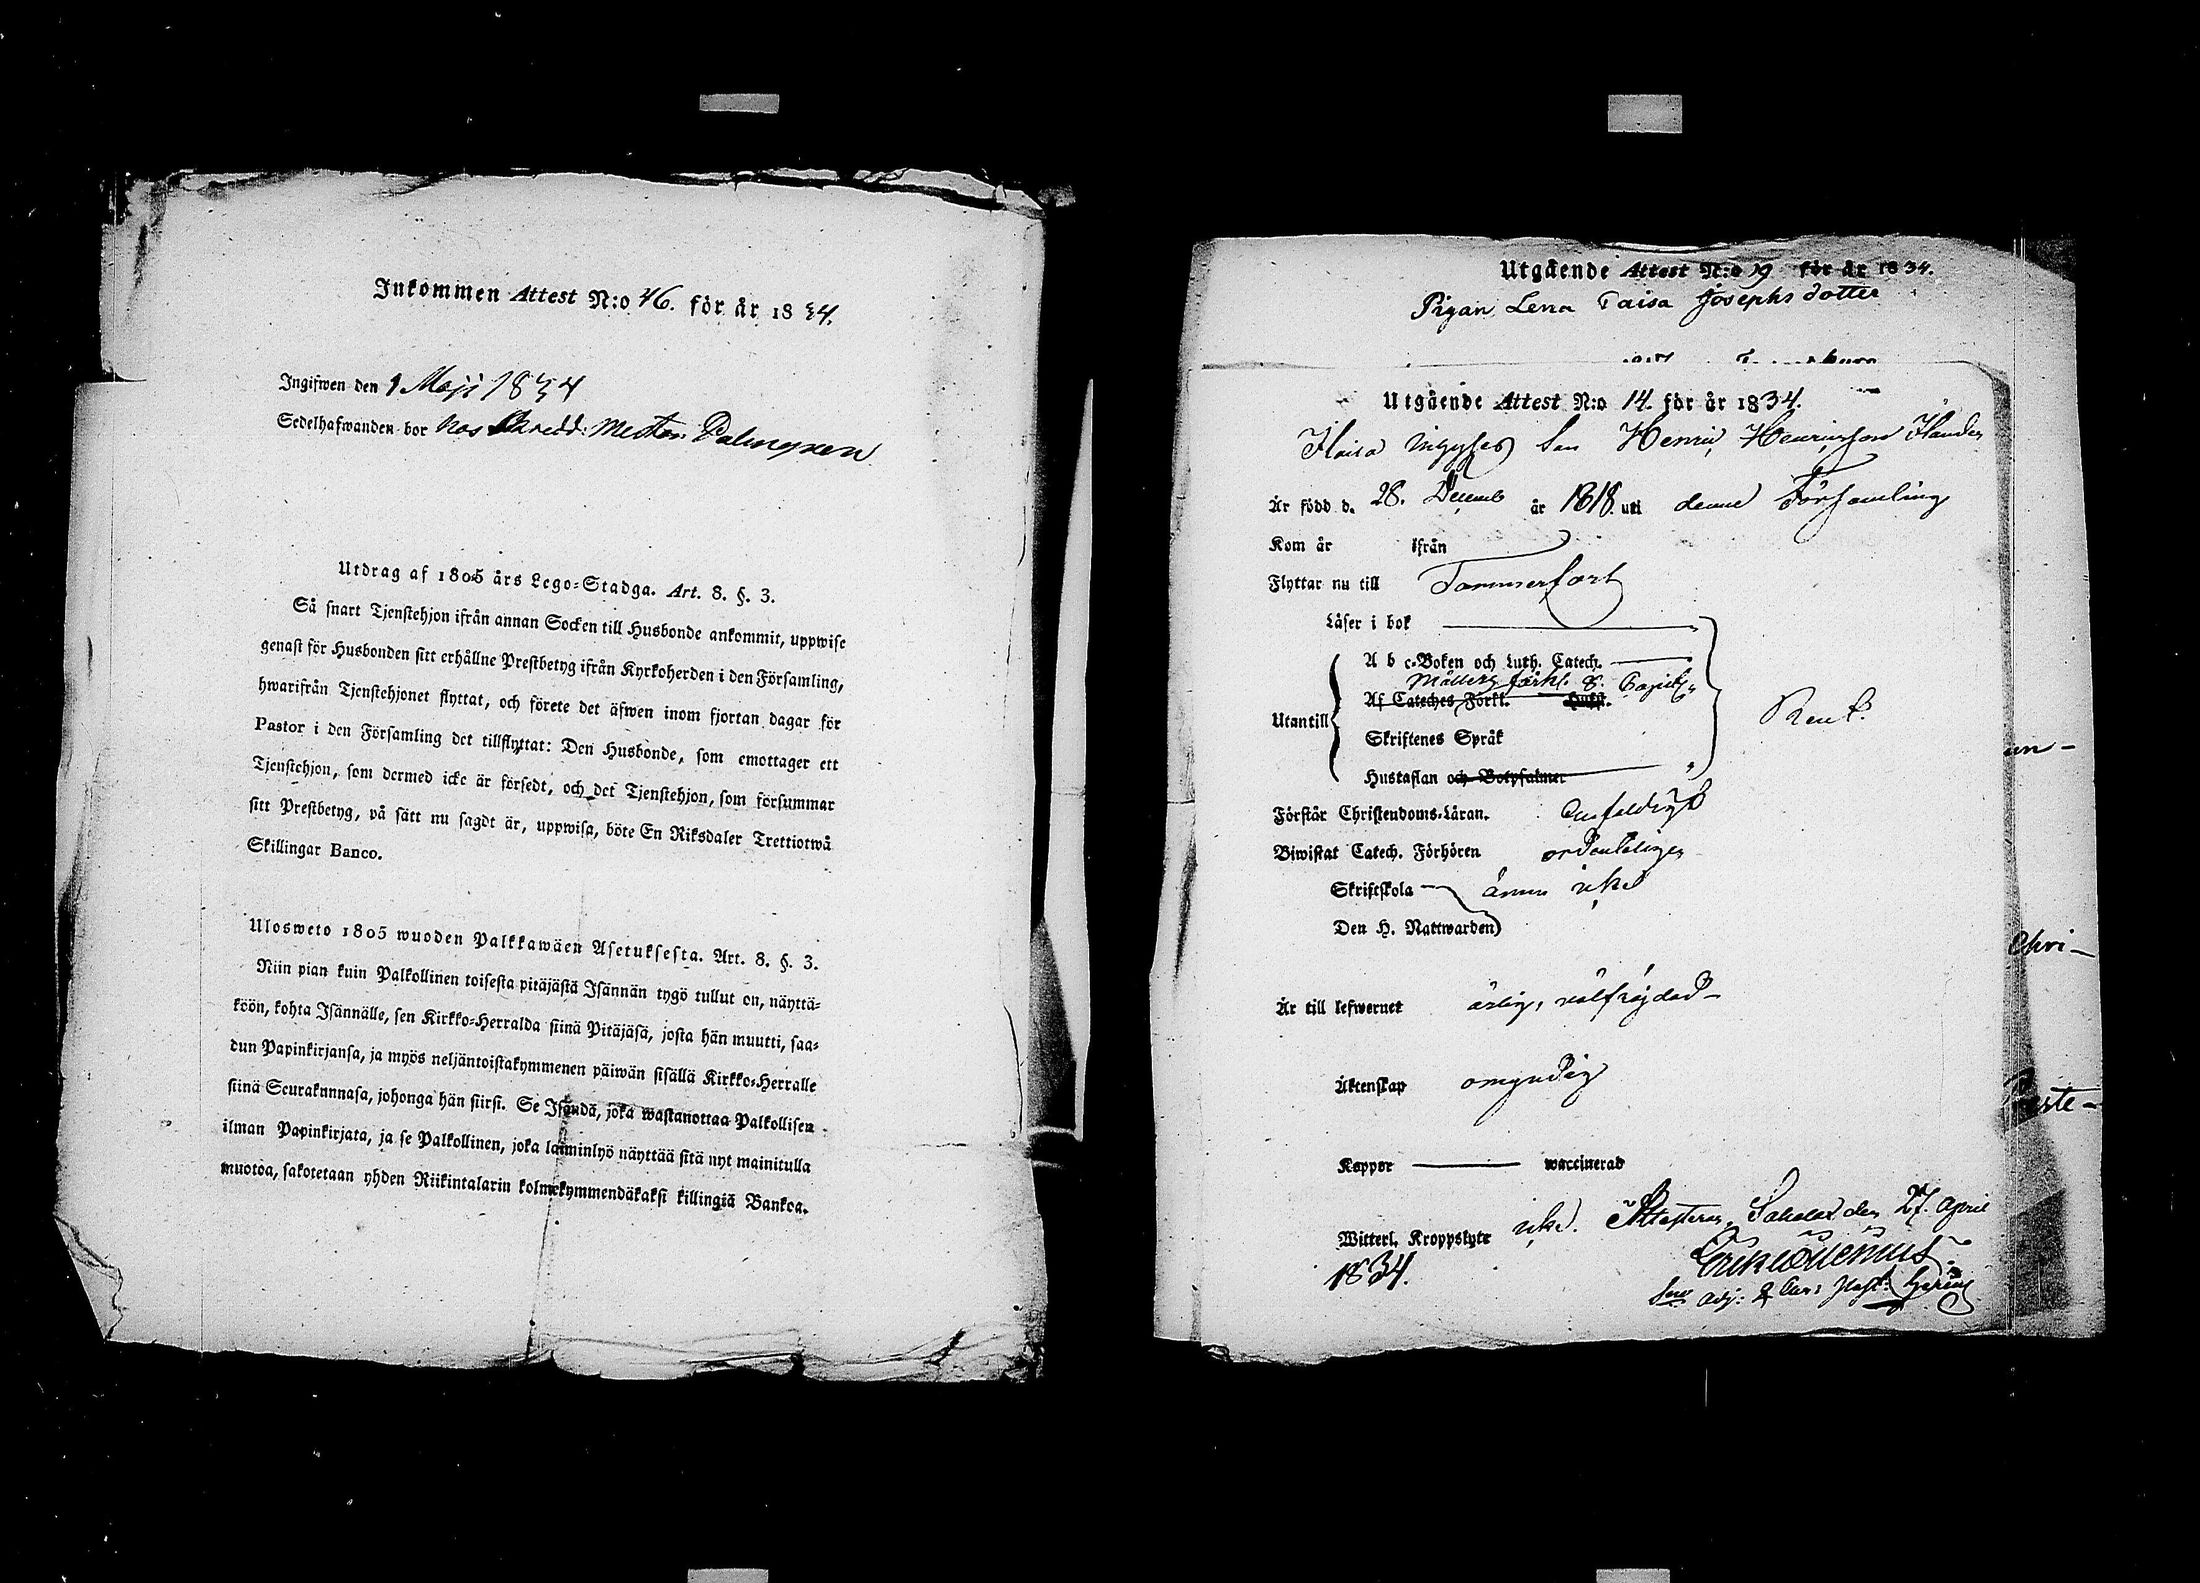 Inkommen Attest N:o 46. för år 1834.
Ingifwen den 1 Maji 1834
Sedelhafwanden bor hos Skredd: Mester Palmgren
Utdrag af 1805 års Lego-Stadga. Art. 8. §. 3.
Så snart Tjenstehjon ifrån annan Socken till Husbonde ankommit, uppwise
genast för Husbonden sitt erhållne Prestbetyg ifrån Kyrkoherden i den Församling,
hwarifrån Tjenstehjonet flyttat, och förete det äfwen inom fjortan dagar för
Pastor i den Församling det tillflyttat: Den Husbonde, som emottager ett
Tjenstehjon, som dermed icke är försedt, och det Tjenstehjon, som försummar
sitt Prestbetyg, på sätt nu sagdt är, uppwisa, böte En Riksdaler Trettiotwå
Skillingar Banco.
Ulosweto 1805 wuoden Palkkawäen Asetuksesta. Art. 8. §. 3.
Niin pian kuin Palkollinen toisesta pitäjästä Isännän tygö tullut on, näyttä-
köön, kohta Isännälle, sen Kirkko-Herralda siinä Pitäjäsä, josta hän muutti, saa-
dun Papinkirjansa, ja myös neljäntoistakymmenen päiwän sisällä Kirkko-Herralle
siinä Seurakunnasa, johonga hän siirsi. Se Isändä, joka wastanottaa Palkollisen
ilman Papinkirjata, ja se Palkollinen, joka laiminlyö näyttää sitä nyt mainitulla
muotoa, sakotetaan yhden Riikintalarin kolmekymmendäkaksi killingiä Bankoa.
Utgående Attest N:o 19 för år 1834.
Pigan Lena Caisa Josephsdotter
Utgående Attest N:o 14. för år 1834.
Son Henric Henricsson
Är född d. 28. Decemb år 1818. uti denne Församling
Kom år ifrån
Flyttar nu till Tammerfors
Läser i bok
A b c-Boken och Luth. Catech.
förkl. 8. Capitl
Af Cateches Förkl. Hufst.
Utantill
Skriftenes Språk
Hustaflan och Botpsalmer
Rent.
Förstår Christendoms-Läran. enfaldigt
Biwistat Catech. Förhören ordenteligen
Skriftskola ännu icke
Den H. Nattwarden
Är till lefwernet ärlig, välfrägdad
Äktenskap omyndig
Koppor waccinerad
Witterl. Kroppslyte icke. Attesteras, Sahalax den 27. April
1834.
un-
Chri-